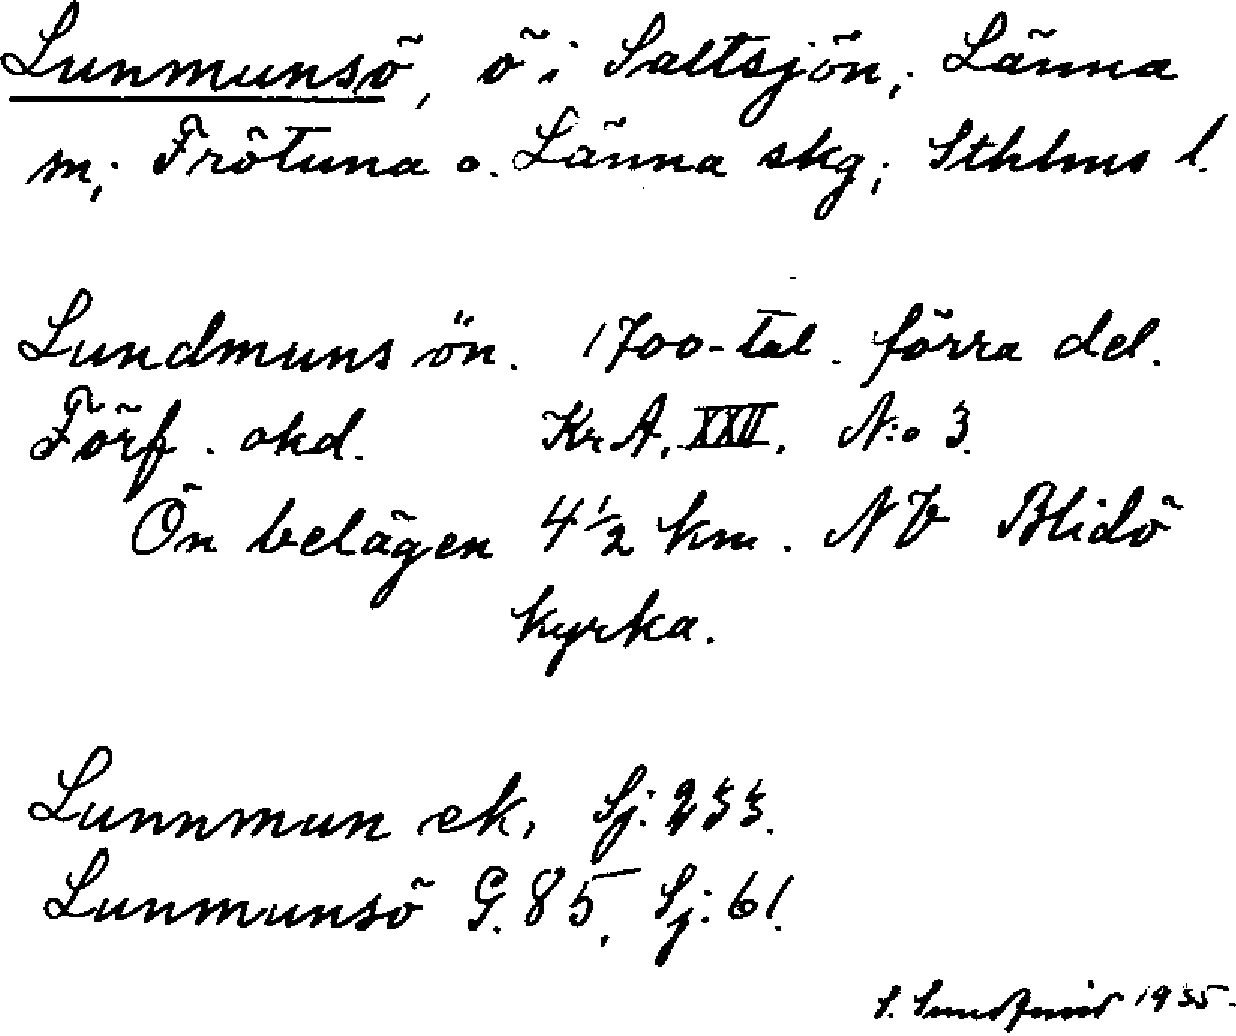 Lunmunsö, ö i Saltsjön; Länna
m; Frötuna o. Länna skg; Sthlms l.
Lundmuns ön. 1700-tal. förra del.
Förf. okd. KrA. XXII. N:o 3.
Ön belägen 4½ km. NV Blidö
kyrka.
Lunnmun ek. Sj: 233.
Lunmunsö G. 85, Sj: 61.
S. 1955.